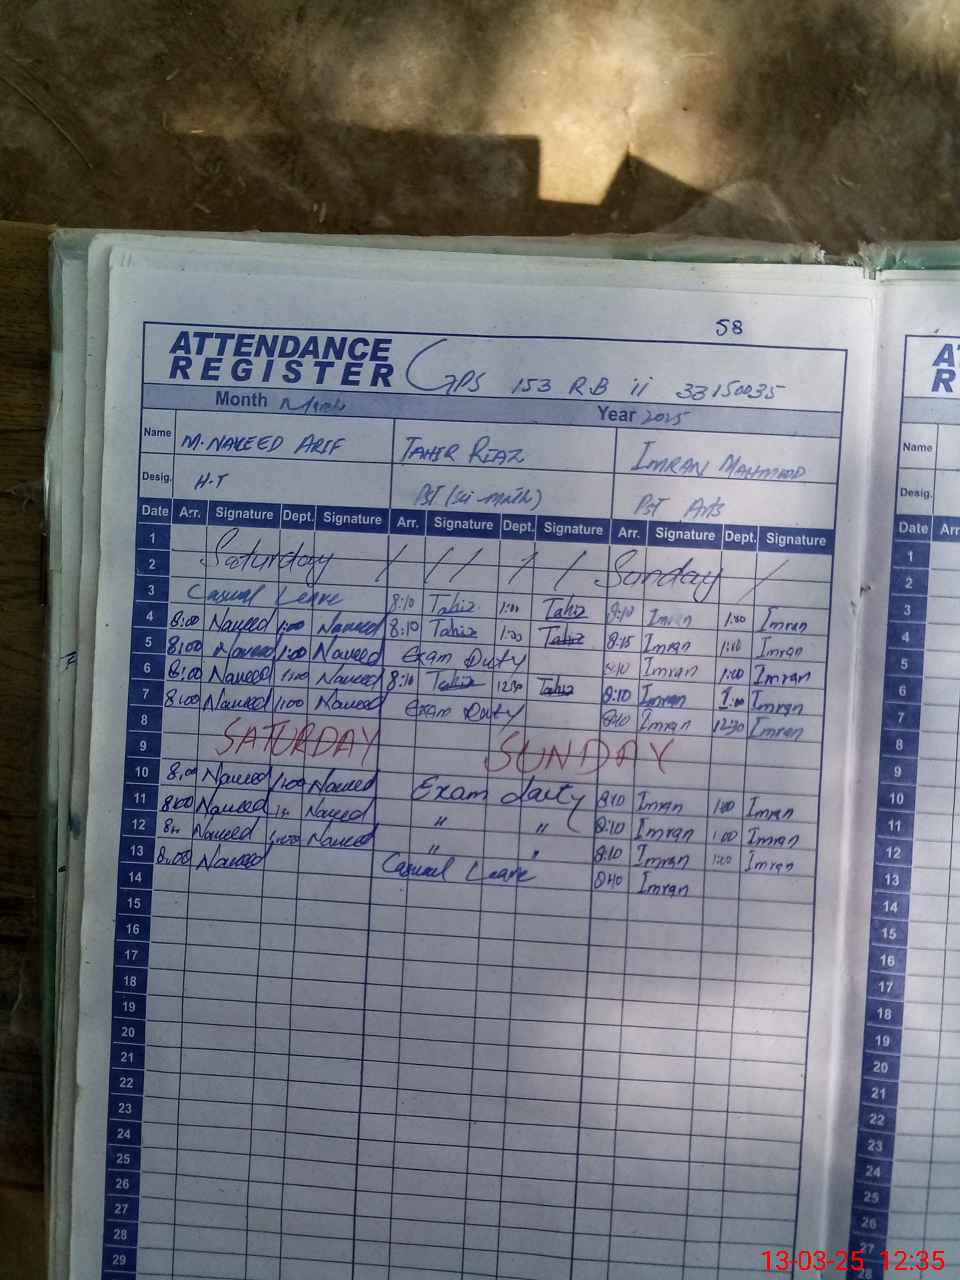 58
ATTENDANCE
REGISTER GPS 153 R.B ii 33150035
Month March Year 2025
Name M. NAVEED ARIF TAHIR RIAZ IMRAN MAHMOOD
Desig. H.T PST (sci-math) PST Arts
Date Arr. Signature Dept. Signature Arr. Signature Dept. Signature Arr. Signature Dept. Signature
1
2 Saturday / / / / / Sunday /
3 Casual Leave 8:10 Tahir 1:00 Tahir 8:10 Imran 1:00 Imran
4 8:00 Naveed 1:00 Naveed 8:10 Tahir 1:00 Tahir 8:15 Imran 1:00 Imran
5 8:00 Naveed 1:00 Naveed Exam Duty 8:10 Imran 1:00 Imran
6 8:00 Naveed 1:00 Naveed 8:10 Tahir 12:30 Tahir 8:10 Imran 1:00 Imran
7 8:00 Naveed 1:00 Naveed Exam Duty 8:10 Imran 12:30 Imran
8
9 SATURDAY SUNDAY
10 8:00 Naveed 1:00 Naveed Exam duty 8:10 Imran 1:00 Imran
11 8:00 Naveed Naveed " " 8:10 Imran 1:00 Imran
12 Naveed 1:00 Naveed " " 8:10 Imran 1:00 Imran
13 8:00 Naveed Casual Leave 8:10 Imran
14
15
16
17
18
19
20
21
22
23
24
25
26
27
28
29
Name
Desig.
Date Arr.
1
2
3
4
5
6
7
8
9
10
11
12
13
14
15
16
17
18
19
20
21
22
23
24
25
26
27
28
13-03-25 12:35